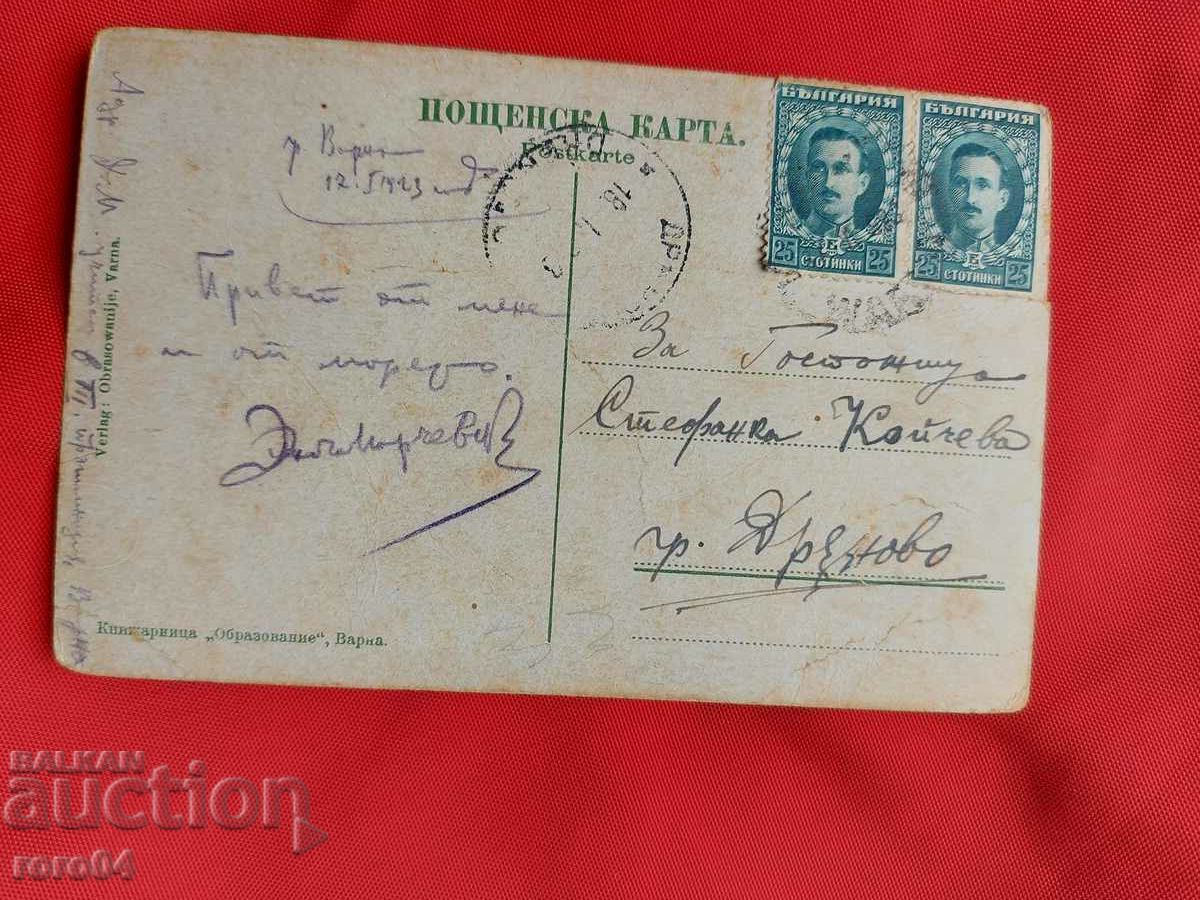 ПОЩЕНСКА КАРТА.
Postkarte
гр. Варна
12.I.1923 год.
Привет от мене
и от морето.
За Госпожица
Стефанка Койчева
гр. Дряново
БЪЛГАРИЯ
25 СТОТИНКИ 25
БЪЛГАРИЯ
25 СТОТИНКИ 25
18
Verlag: Obrasowanije, Varna.
Книжарница „Образование“, Варна.
BALKAN
auction
roro04